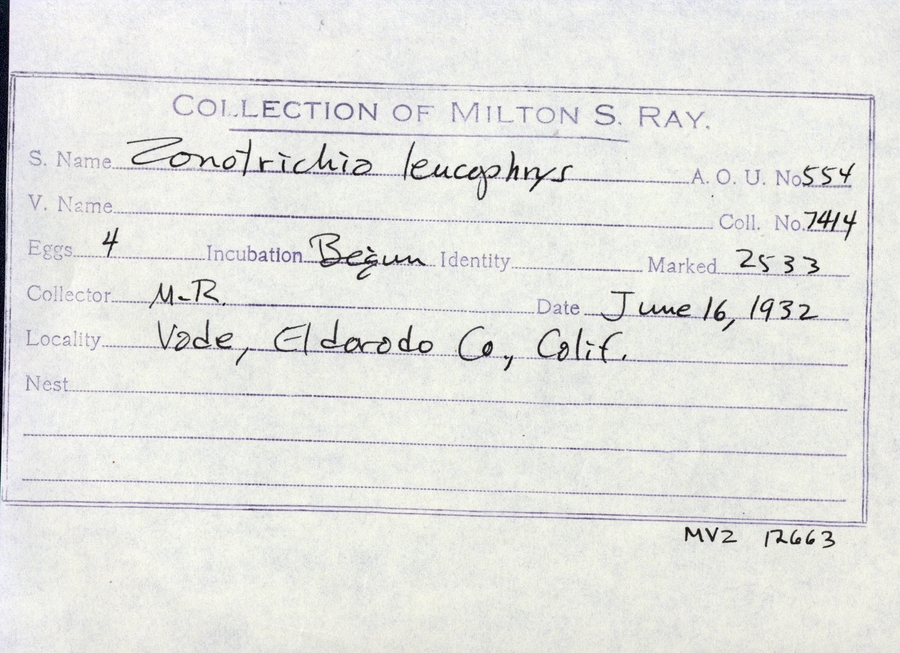 COLLECTION OF MILTON S. RAY.
S. Name Zonotrichia leucophrys A. O. U. No. 554
V. Name Coll. No. 7414
Eggs 4 Incubation Begun Identity Marked 2533
Collector M.R. Date June 16, 1932
Locality Vade, Eldorado Co., Calif.
Nest
MVZ 12663